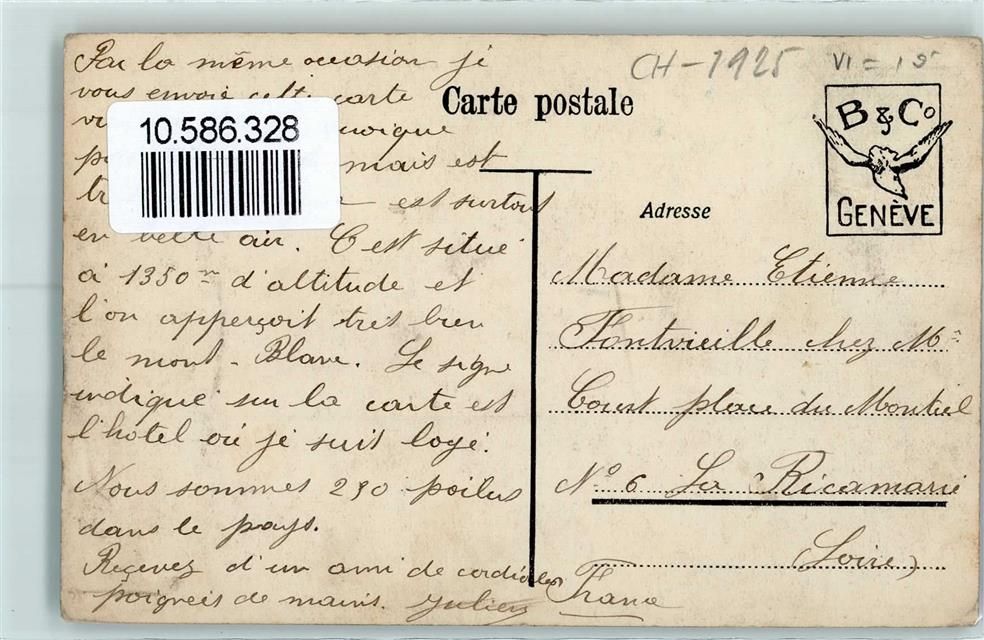 Par la même occasion je
vous envoie cette carte
mais est
est surtout
en belle air. C'est situé
à 1350 m d'altitude et
l'on apperçoit très bien
le mont-Blanc. Le signe
indiqué sur la carte est
l'hôtel où je suit logé.
Nous sommes 290 poilus
dans le pays.
Reçevez d'un ami de cordiales
poignées de mains. Julien
10.586.328
CH-1925
Carte postale
B & Co
GENÈVE
Adresse
Madame Etienne
Fontvieille chez Mr
Court place du Montiel
No 6 La Ricamarie
(Loire)
France